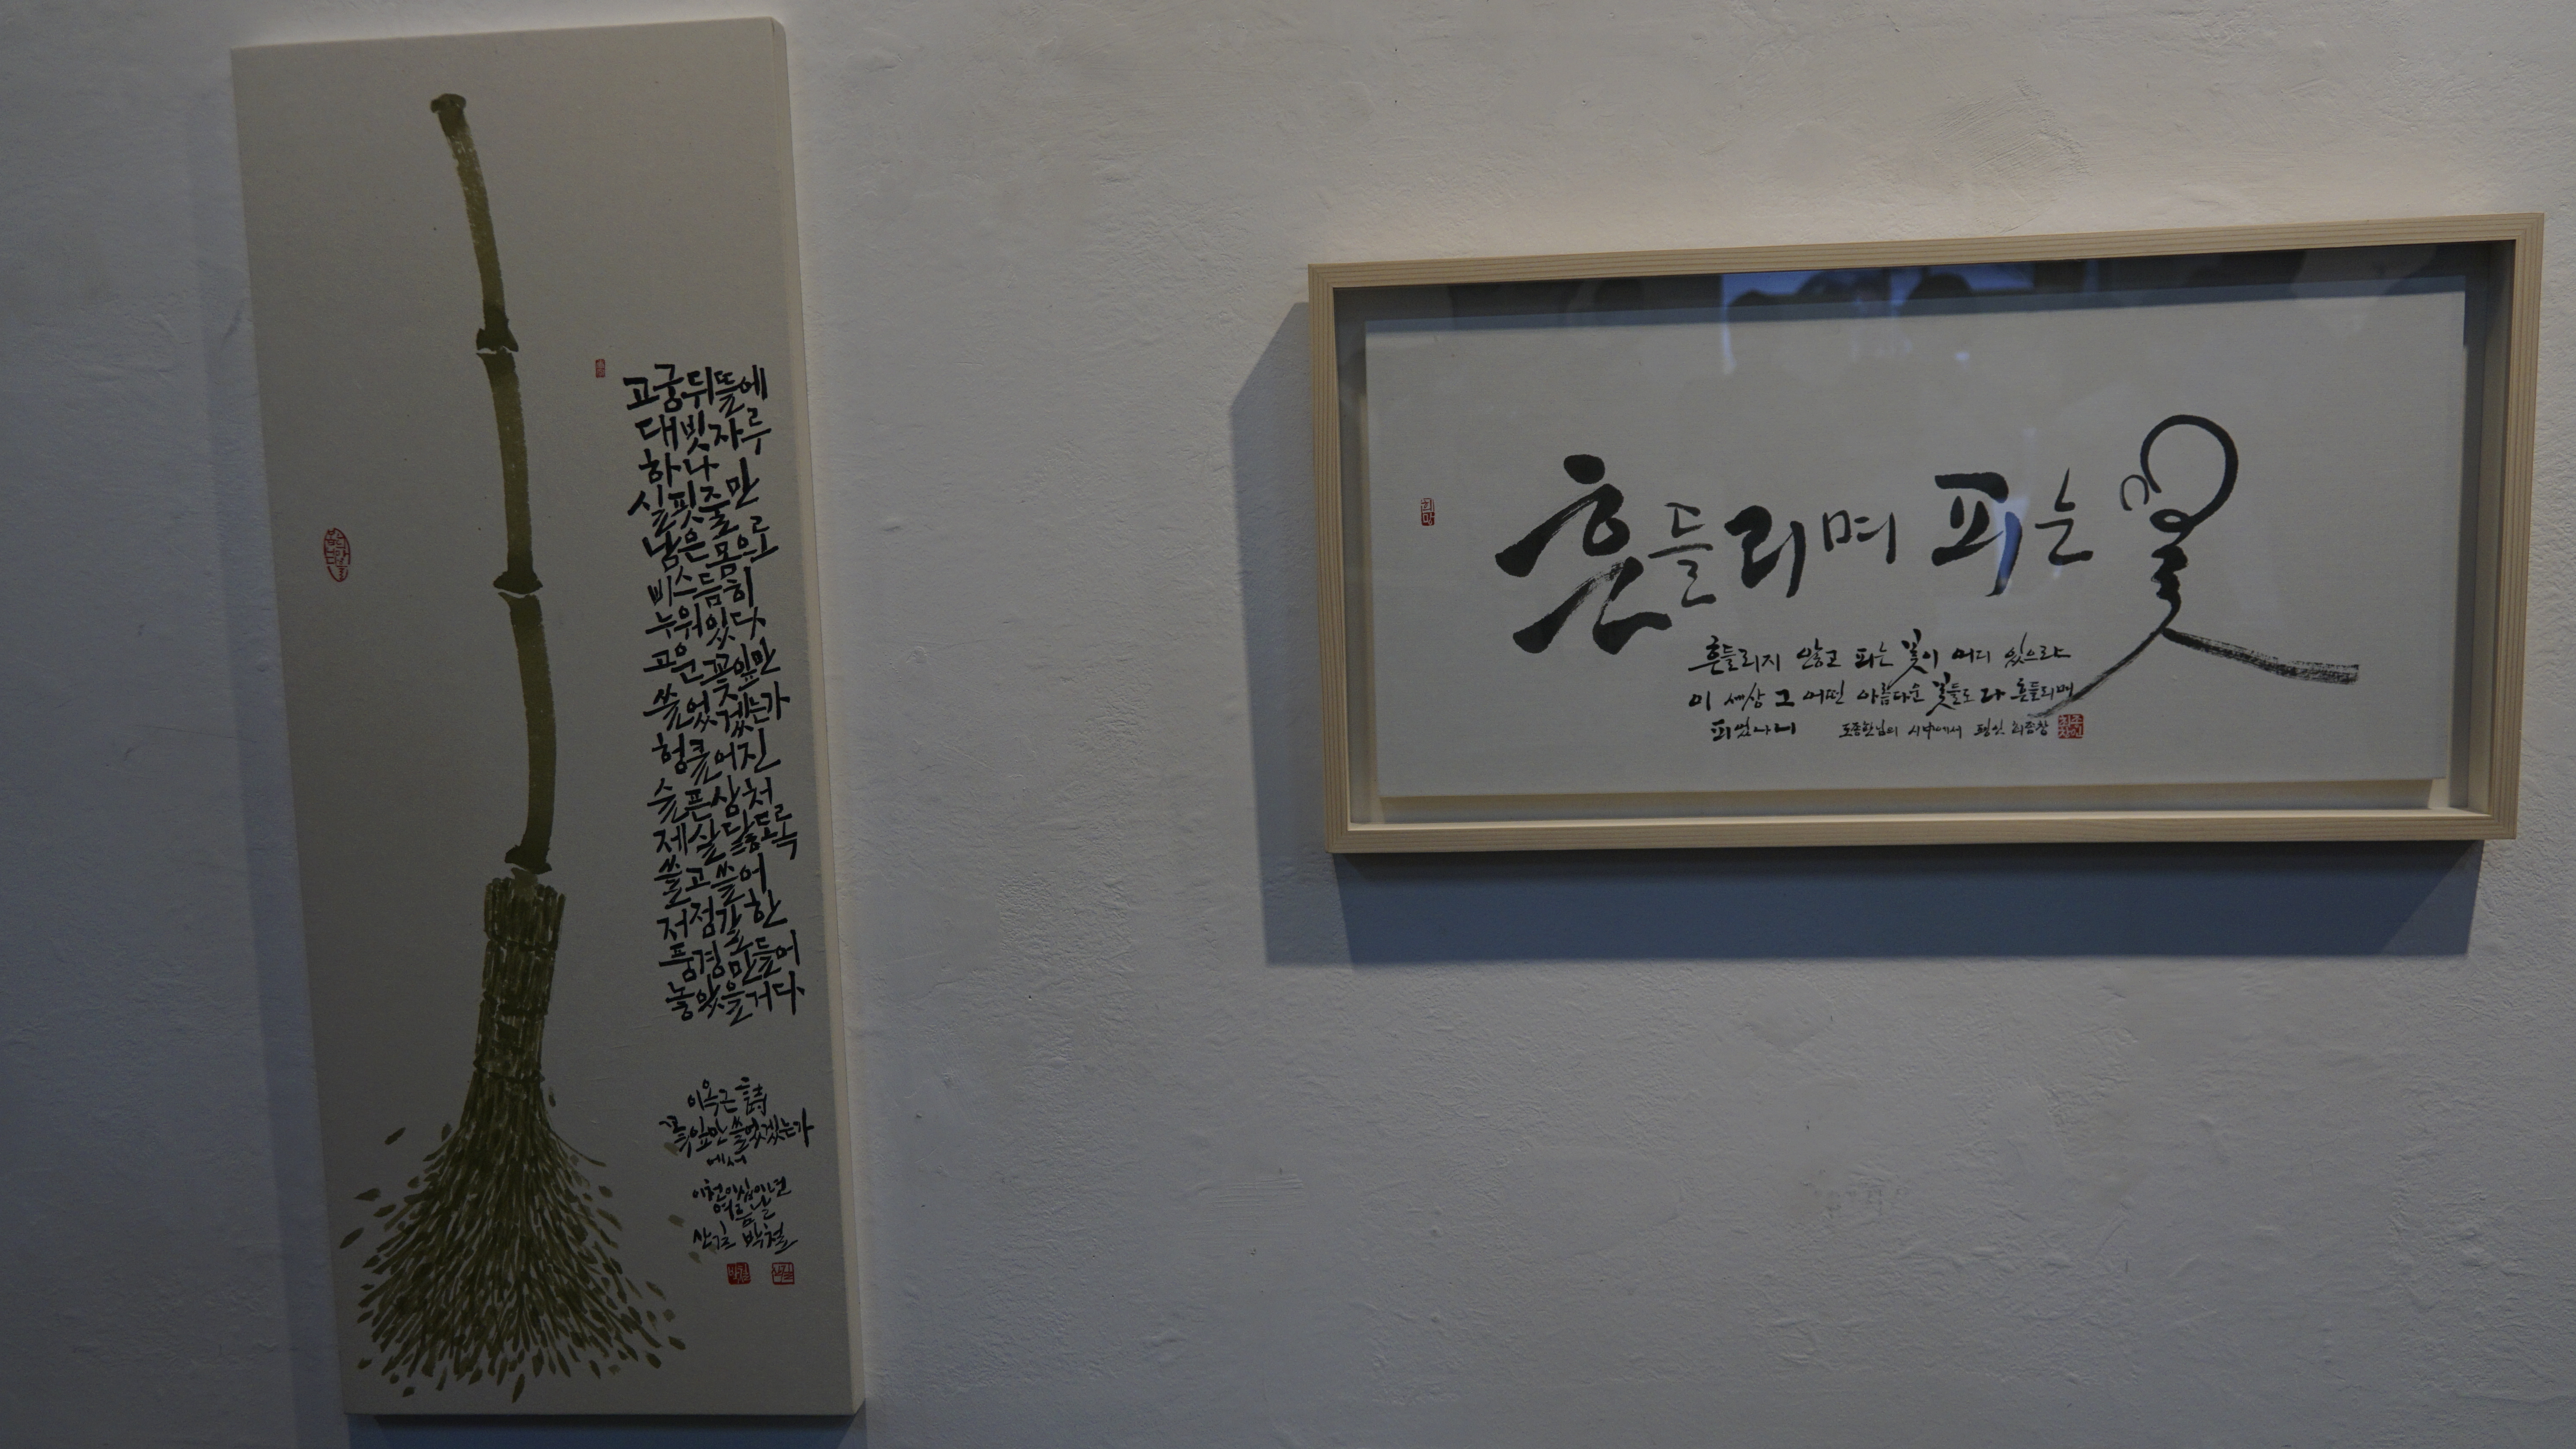 고궁뒤뜰에
대빗자루
하나
실핏줄만
남은 몸으로
비스듬히
누워있다
고운 꽃잎만
쓸었겠는가
헝클어진
슬픈 상처
제 살 닳도록
쓸고 쓸어
저 정갈한
풍경 만들어
놓았을거다
이옥근 詩
꽃잎만 쓸었겠는가
에서
이천이십이년
여름날
산길 박철
흔들리며 피는 꽃
흔들리지 않고 피는 꽃이 어디 있으랴
이 세상 그 어떤 아름다운 꽃들도 다 흔들리며
피었나니 도종환님의 시中에서
희망